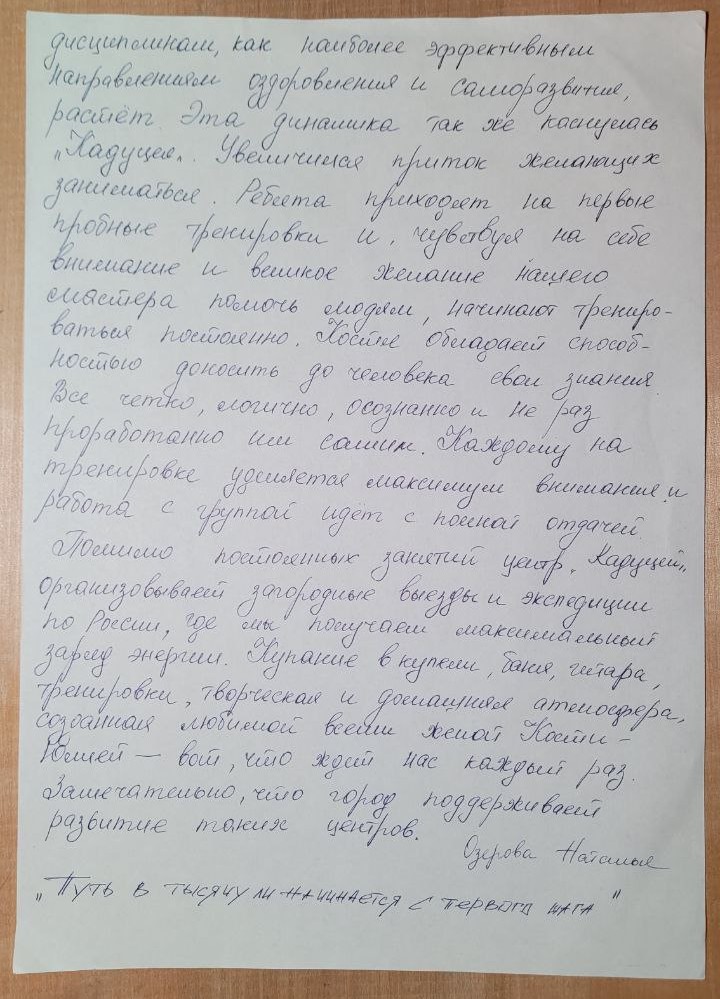 дисциплинам, как наиболее эффективным
направлениям оздоровления и саморазвития,
растёт. Эта динамика так же коснулась
„Кадуцея„. Увеличился приток желающих
заниматься. Ребята приходят на первые
пробные тренировки и, чувствуя на себе
внимание и великое желание нашего
мастера помочь людям, начинают трениро-
ваться постоянно. Костя обладает способ-
ностью доносить до человека свои знания.
Все четко, логично, осознанно и не раз
проработанно им самим. Каждому на
тренировке уделяется максимум внимания и
работа с группой идёт с полной отдачей.
Помимо постоянных занятий центр „Кадуцей„
организовывает загородные выезды и экспедиции
по России, где мы получаем максимальный
заряд энергии. Купание в купели, баня, гитара,
тренировки, творческая и домашняя атмосфера,
созданная любимой всеми женой Кости –
Юлией — вот, что ждет нас каждый раз.
Замечательно, что город поддерживает
развитие таких центров.
Озерова Наталья
„Путь в тысячу ли начинается с первого шага"